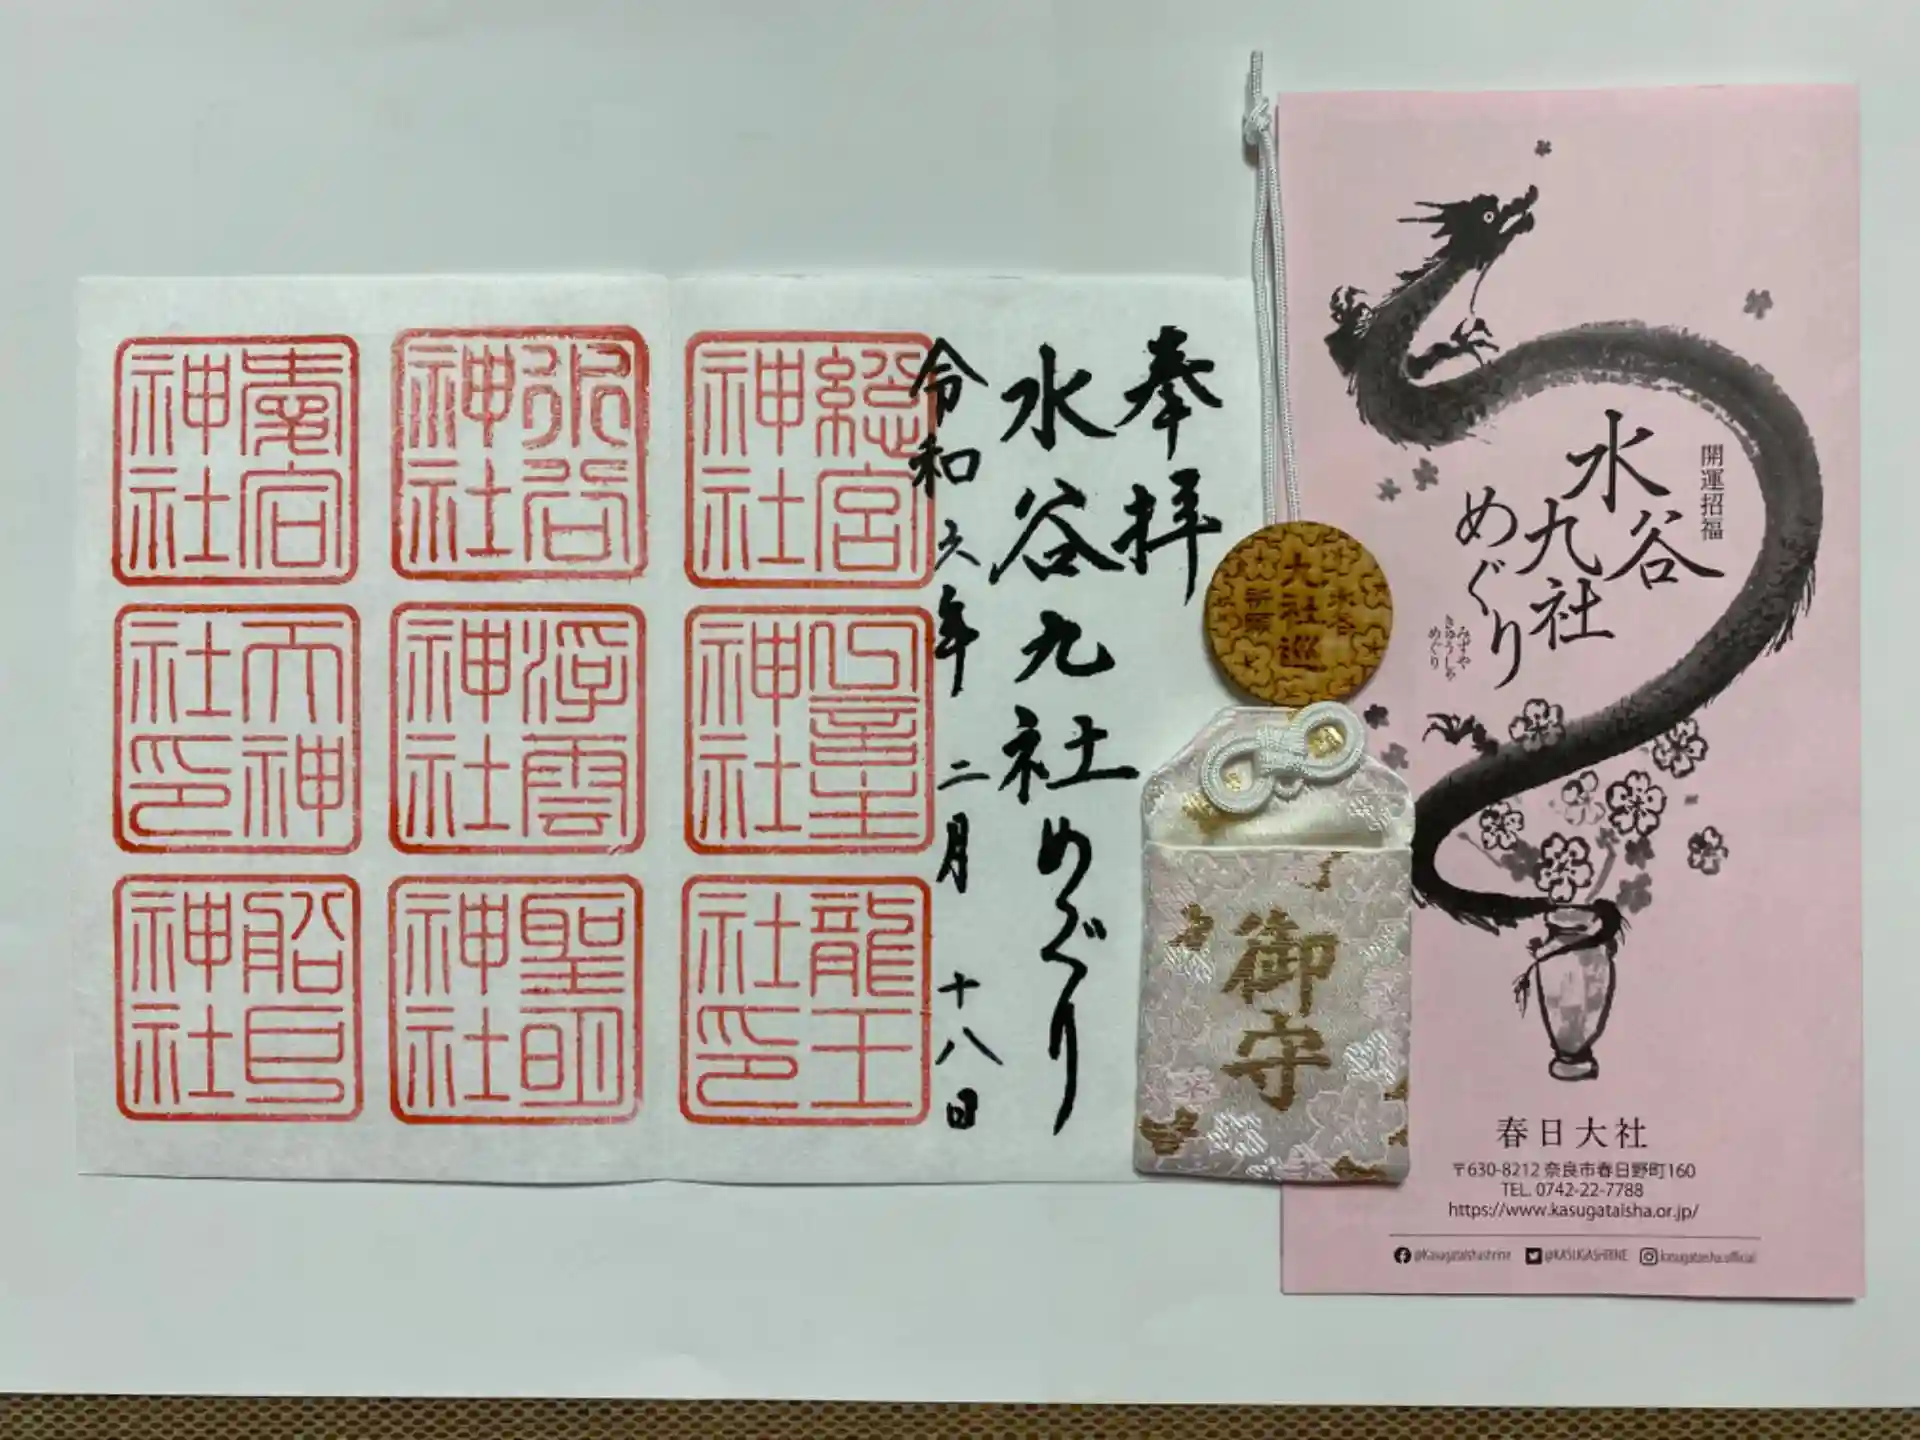 奉拝
水谷九社めぐり
令和六年二月十八日
総宮神社
一言主神社
龍王社印
水谷神社
浮雲神社
聖明神社
愛宕神社
天神社印
船戸神社
九社巡
御守
開運招福
水谷
九社
めぐり
みずや
きゅうしゃ
めぐり
春日大社
〒630-8212 奈良市春日野町160
TEL. 0742-22-7788
https://www.kasugataisha.or.jp/
@Kasugataishashrine @KASUGASHRINE kasugataisha.official